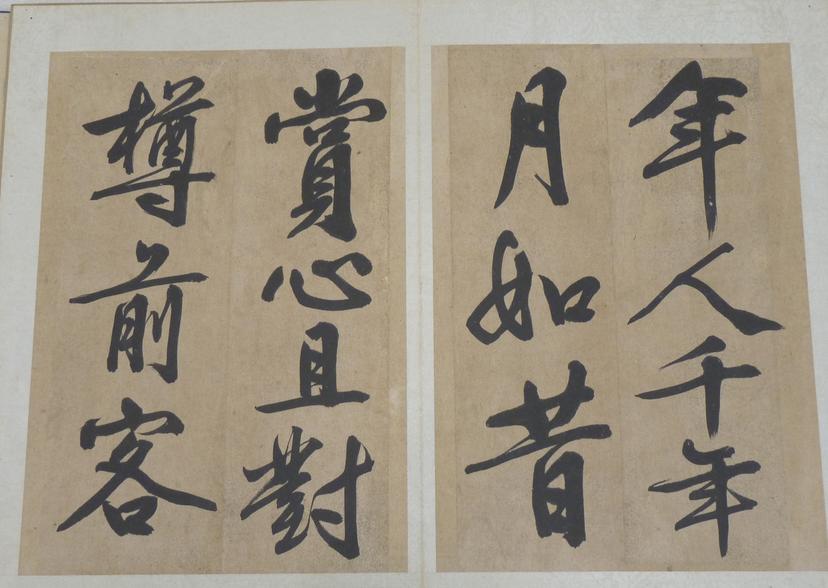 年人千年
月如昔
賞心且對
樽前客